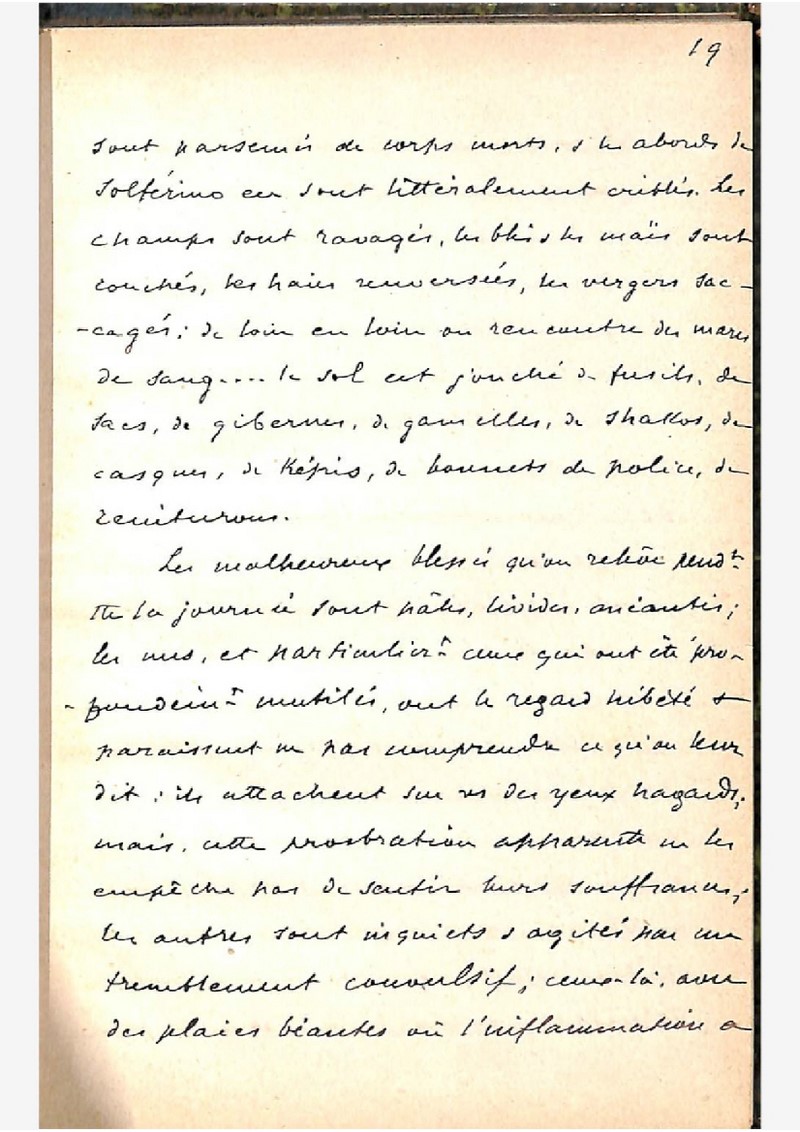 19
sont parsemés de corps morts, & les abords de
Solférino en sont littéralement criblés. Les
champs sont ravagés, les blés & les maïs sont
couchés, les haies renversées, les vergers sac-
-cagés; de loin en loin on rencontre des mares
de sang.... le sol est jonché de fusils, de
sacs, de gibernes, de gamelles, de shakos, de
casques, de képis, de bonnets de police, de
ceinturons.
Les malheureux blessés qu'on relève pendt
tte la journée sont pâles, livides, anéantis;
les uns, et particulièrt ceux qui ont été pro-
-fondémt mutilés, ont le regard hébété &
paraissent ne pas comprendre ce qu'on leur
dit: ils attachent sur vs des yeux hagards;
mais, cette prostration apparente ne les
empêche pas de sentir leurs souffrances;
les autres sont inquiets & agités par un
tremblement convulsif; ceux-là, avec
des plaies béantes où l'inflammation a